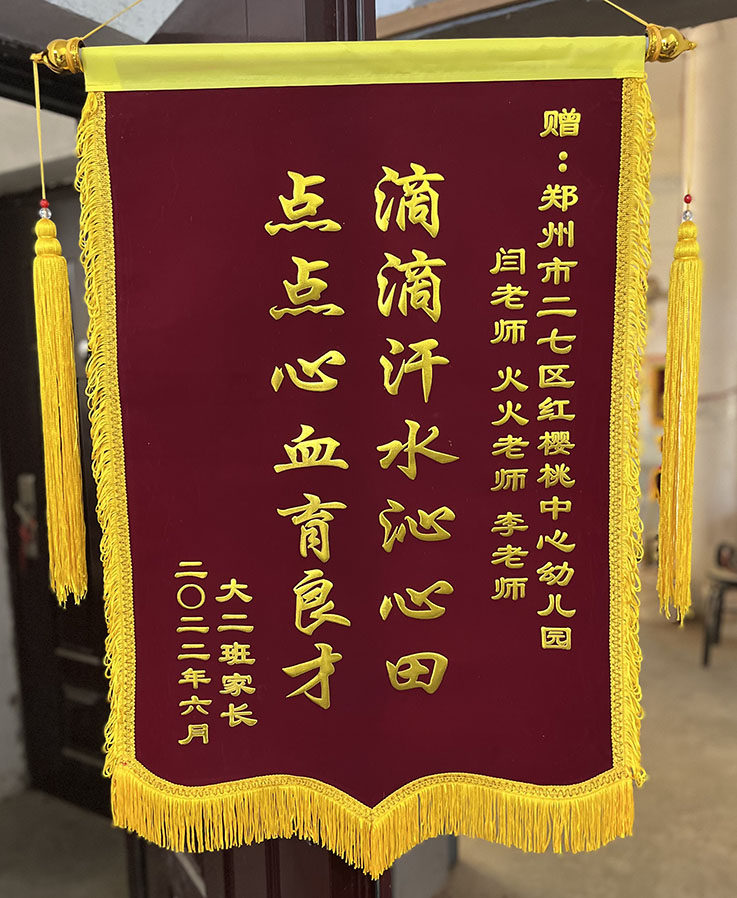 赠：郑州市二七区红樱桃中心幼儿园
闫老师 火火老师 李老师
滴滴汗水沁心田
点点心血育良才
大二班家长
二〇二二年六月